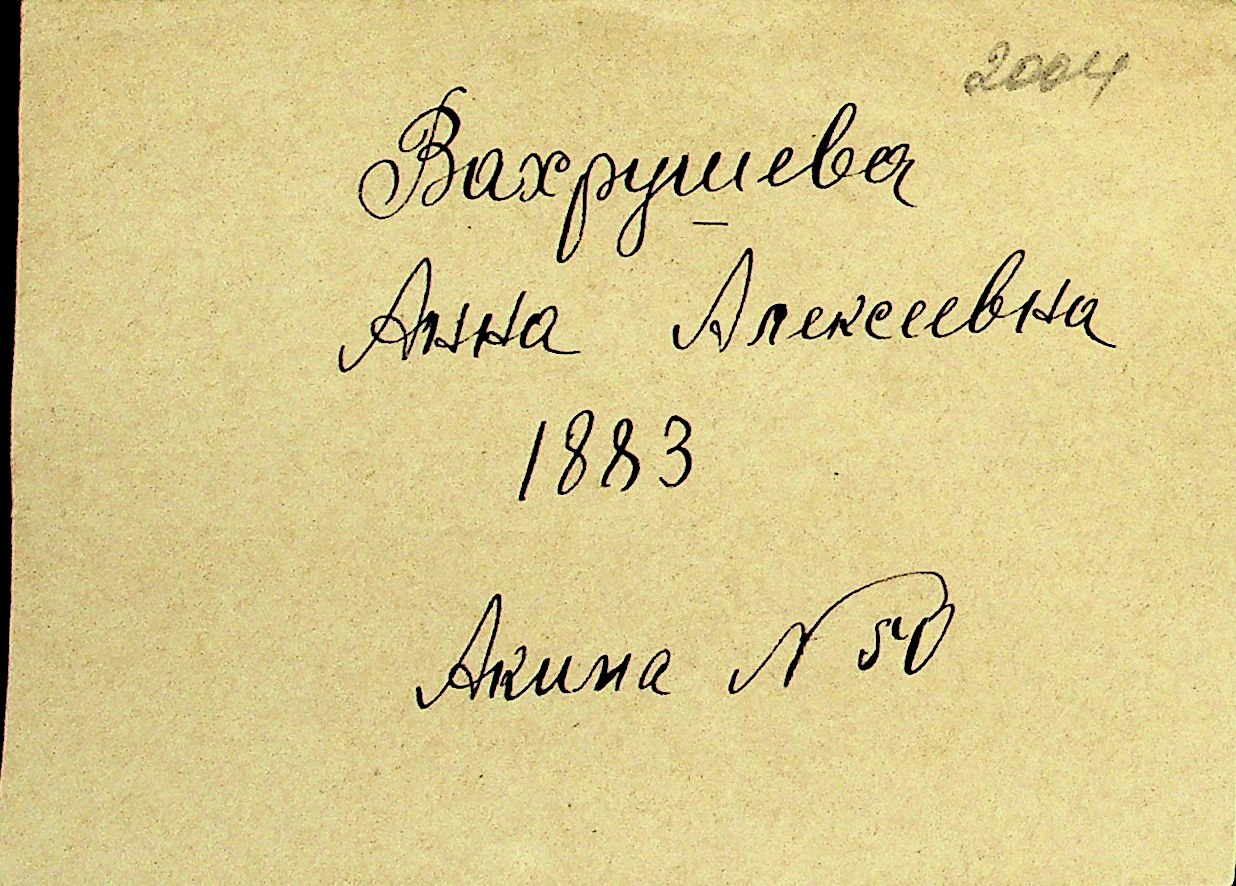 2004
Вахрушева
Анна Алексеевна
1883
Акима №